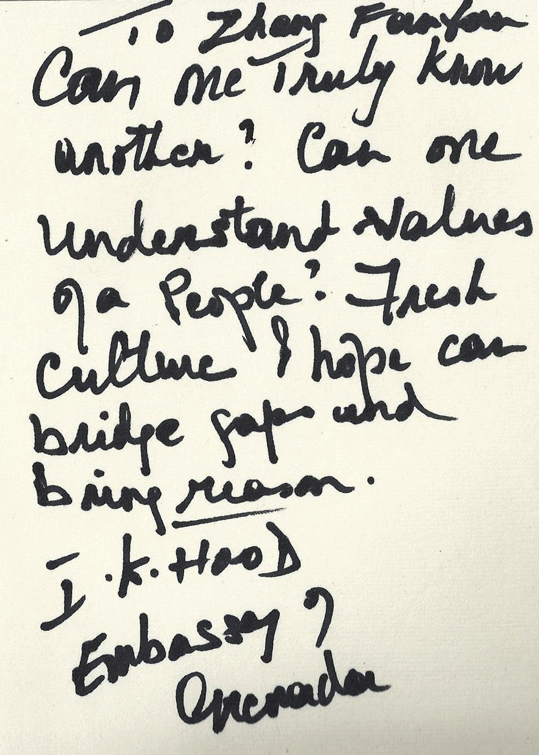 To Zhang
Can one Truly Know
another? Can one
Understand values
of a People? Fresh
Culture I hope can
bridge gaps and
bring reason.
I.K. HOOD
Embassy of
Grenada